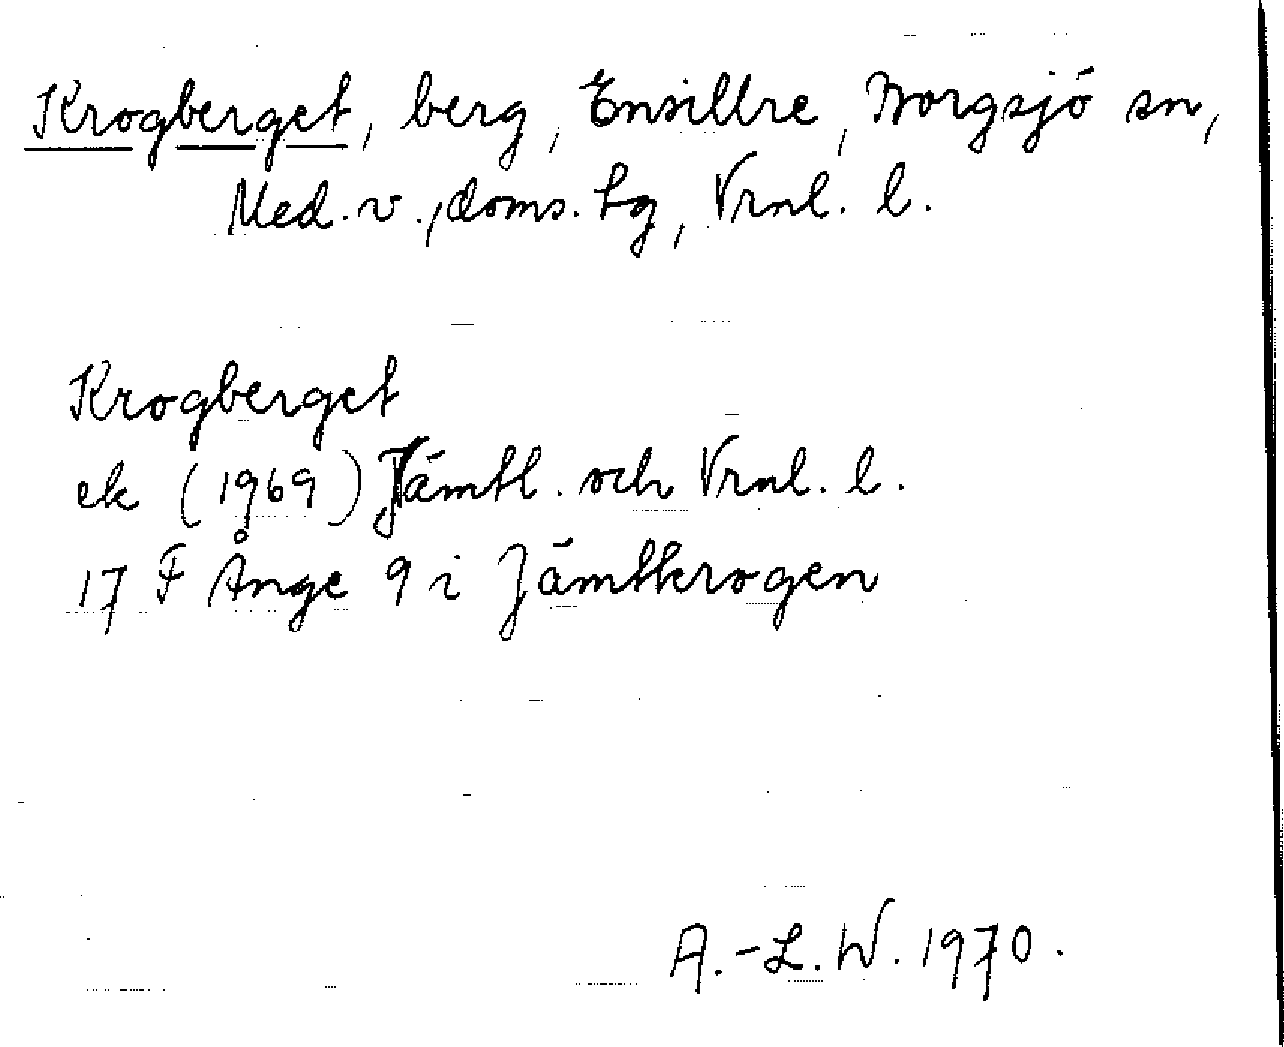 Krogberget, berg, Ensillre, Borgsjö sn,
Med. v., doms. tg, Vrnl. l.
Krogberget
ek (1969) Jämtl. och Vrnl. l.
17 F Ånge 9 i Jämtkrogen
A.-L. W. 1970.